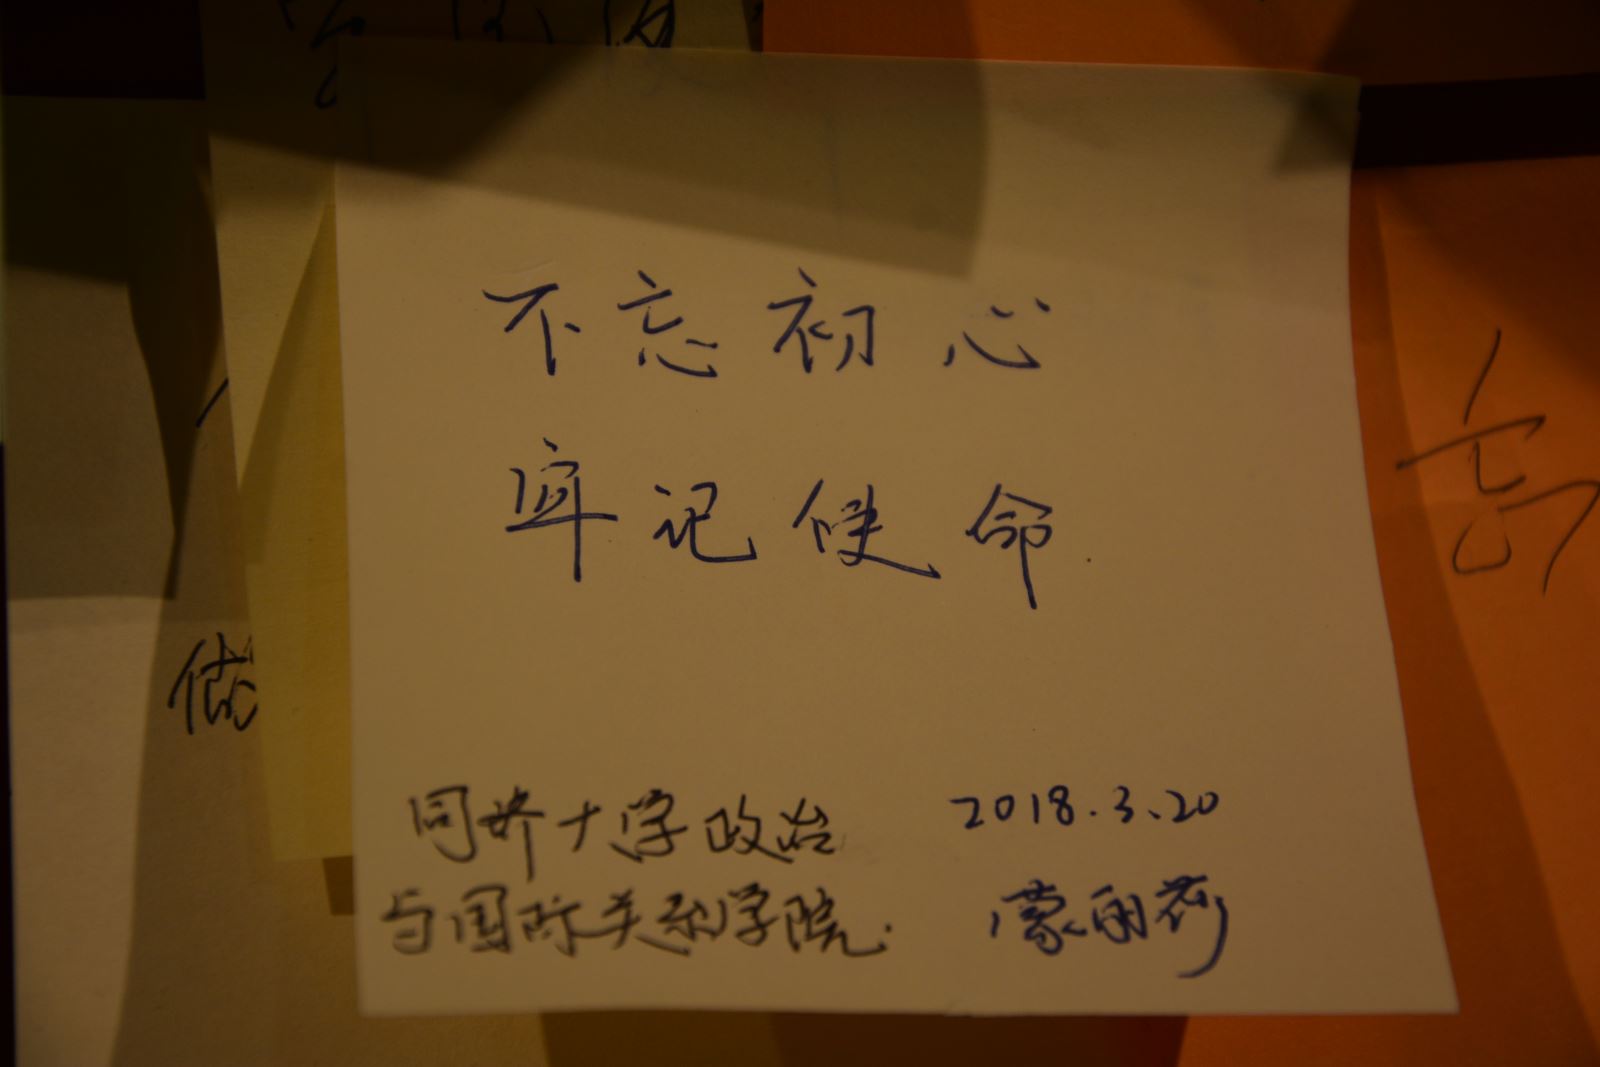 不忘初心
牢记使命
同济大学政治
与国际关系学院.
2018.3.20
蒙丽莎
做
高